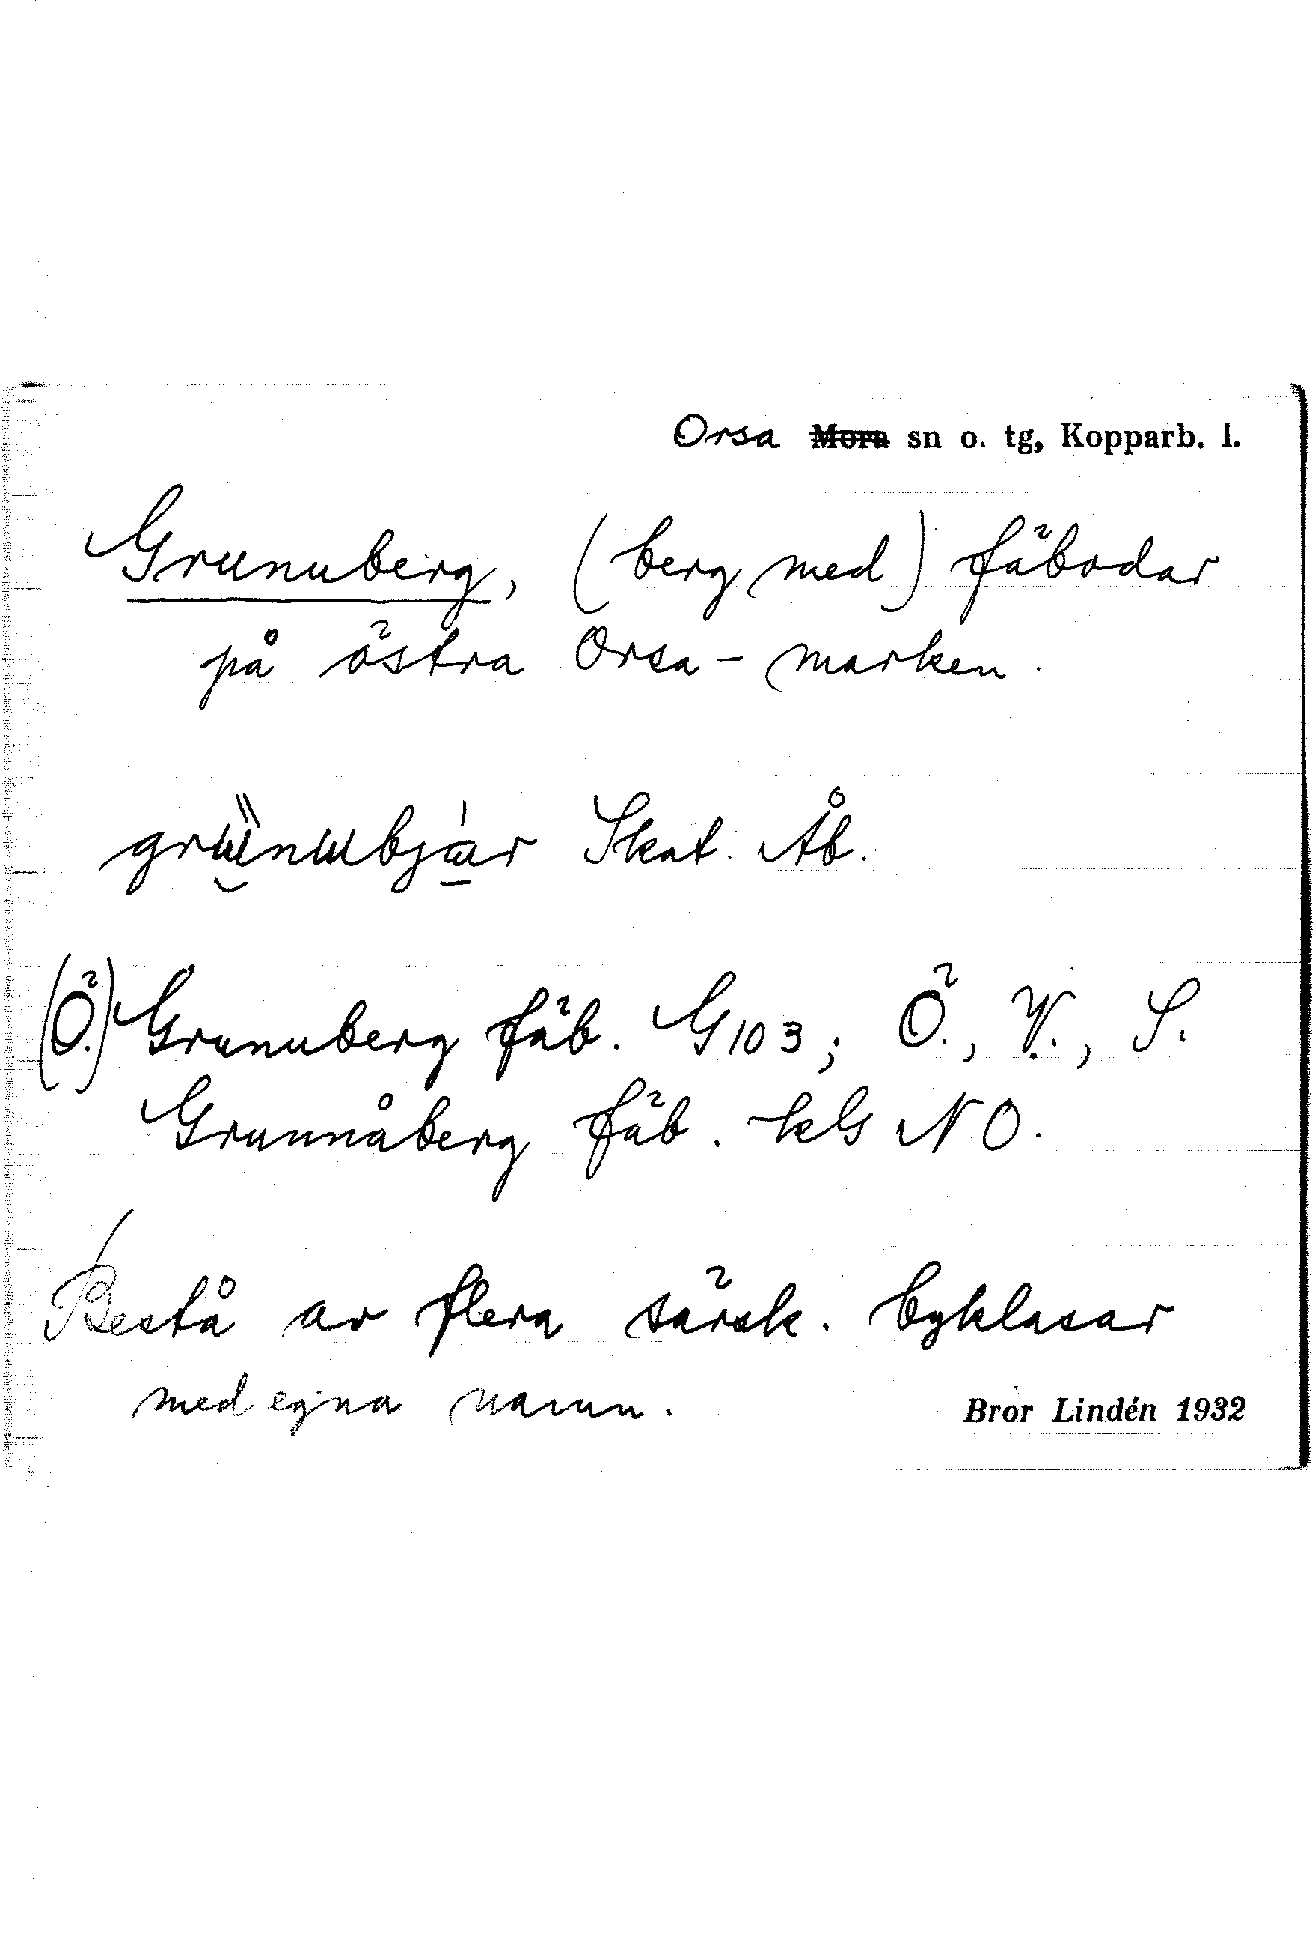 Orsa Mora sn o. tg, Kopparb. l.
Grunuberg, (berg med) fäbodar
på östra Orsa-marken.
Skat. Åb.
(Ö.) Grunuberg fäb. G103; Ö., V., S.
Grunnåberg fäb. kls NO.
Bestå av flera särsk. byklasar
med egna namn.
Bror Lindén 1932